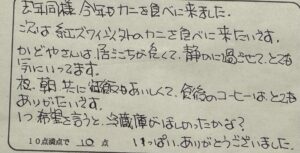 去年同様 今年もカニを食べに来ました。
次は紅ズワイ以外のカニを食べに来たいです。
かどやさんは、居ごこちが良くて、静かに過ごせて、とても
気に入ってます。
夜、朝 共に御飯もおいしくて、食後のコーヒーは、とても
ありがたいです。
1つ希望を言うと、冷蔵庫がほしかったかな？
10点満点で 10 点 いっぱい、ありがとうございました。